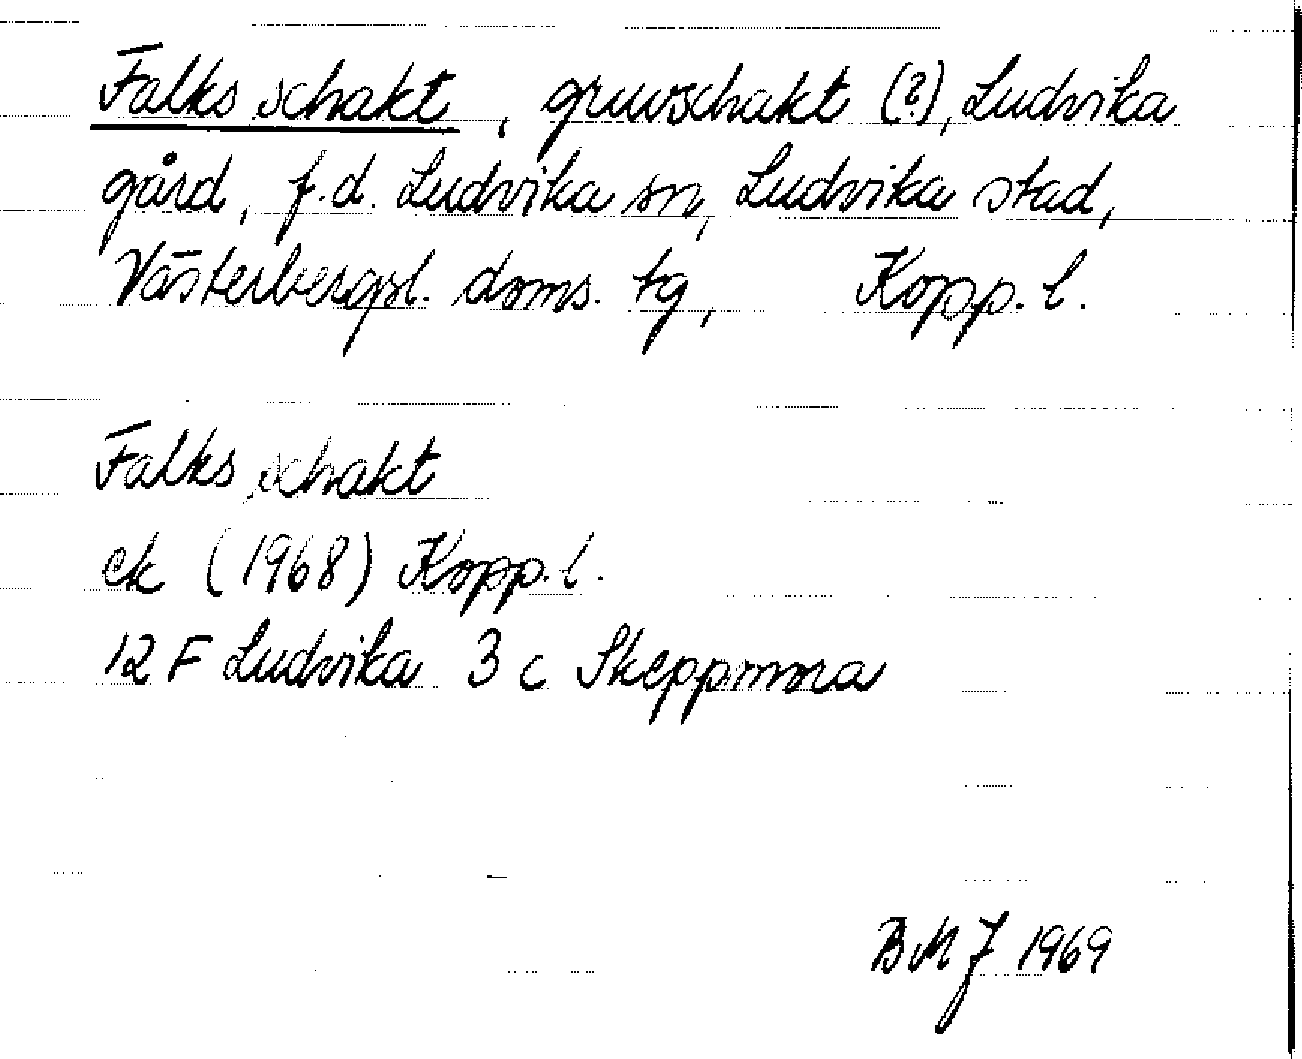 Falks schakt, gruvschakt (?), Ludvika
gård, f.d. Ludvika sn, Ludvika stad,
Västerbergsl. doms. tg, Kopp. l.
Falks schakt
ek (1968) Kopp. l.
12 F Ludvika 3 c Skeppmora
BMJ 1969